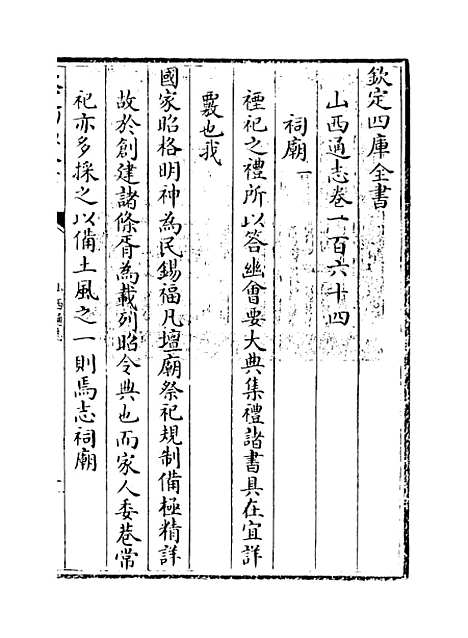 欽定四庫全書
山西通志卷一百六十四
祠廟一
禋祀之禮所以答幽會要大典集禮諸書具在宜詳
覈也我
國家昭格明神為民錫福凡壇廟祭祀規制備極精詳
故於創建諸條胥為載列昭令典也而家人委巷常
祀亦多採之以備土風之一則焉志祠廟